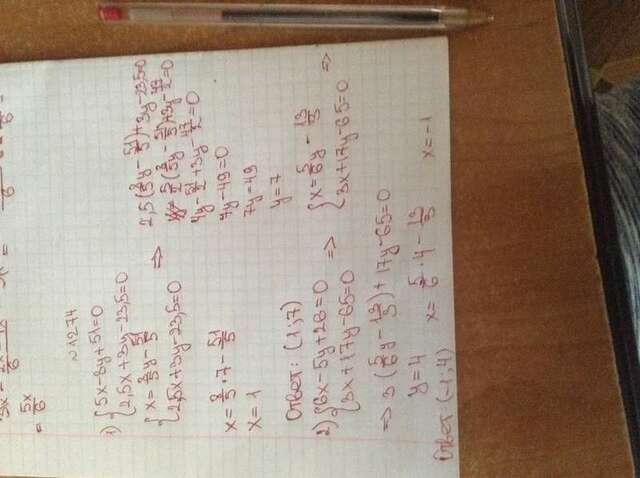 = 5x/6
№1274
1) {5x-8y+51=0
{2,5x+3y-23,5=0
{x=8/5y-51/5
{2,5x+3y-23,5=0
=>
2,5(8/5y-51/5)+3y-23,5=0
5/2(8/5y-51/5)+3y-47/2=0
4y-51/2+3y-47/2=0
7y-49=0
7y-49
y=7
x=8/5·7-51/5
x=1
Ответ: (1;7)
2) {6x-5y+26=0
{3x+17y-65=0
=>
{x=5/6y-13/3
{3x+17y-65=0
=>
=> 3(5/6y-13/3)+17y-65=0
y=4
x=5/6·4-13/3
x=-1
Ответ: (-1;4)